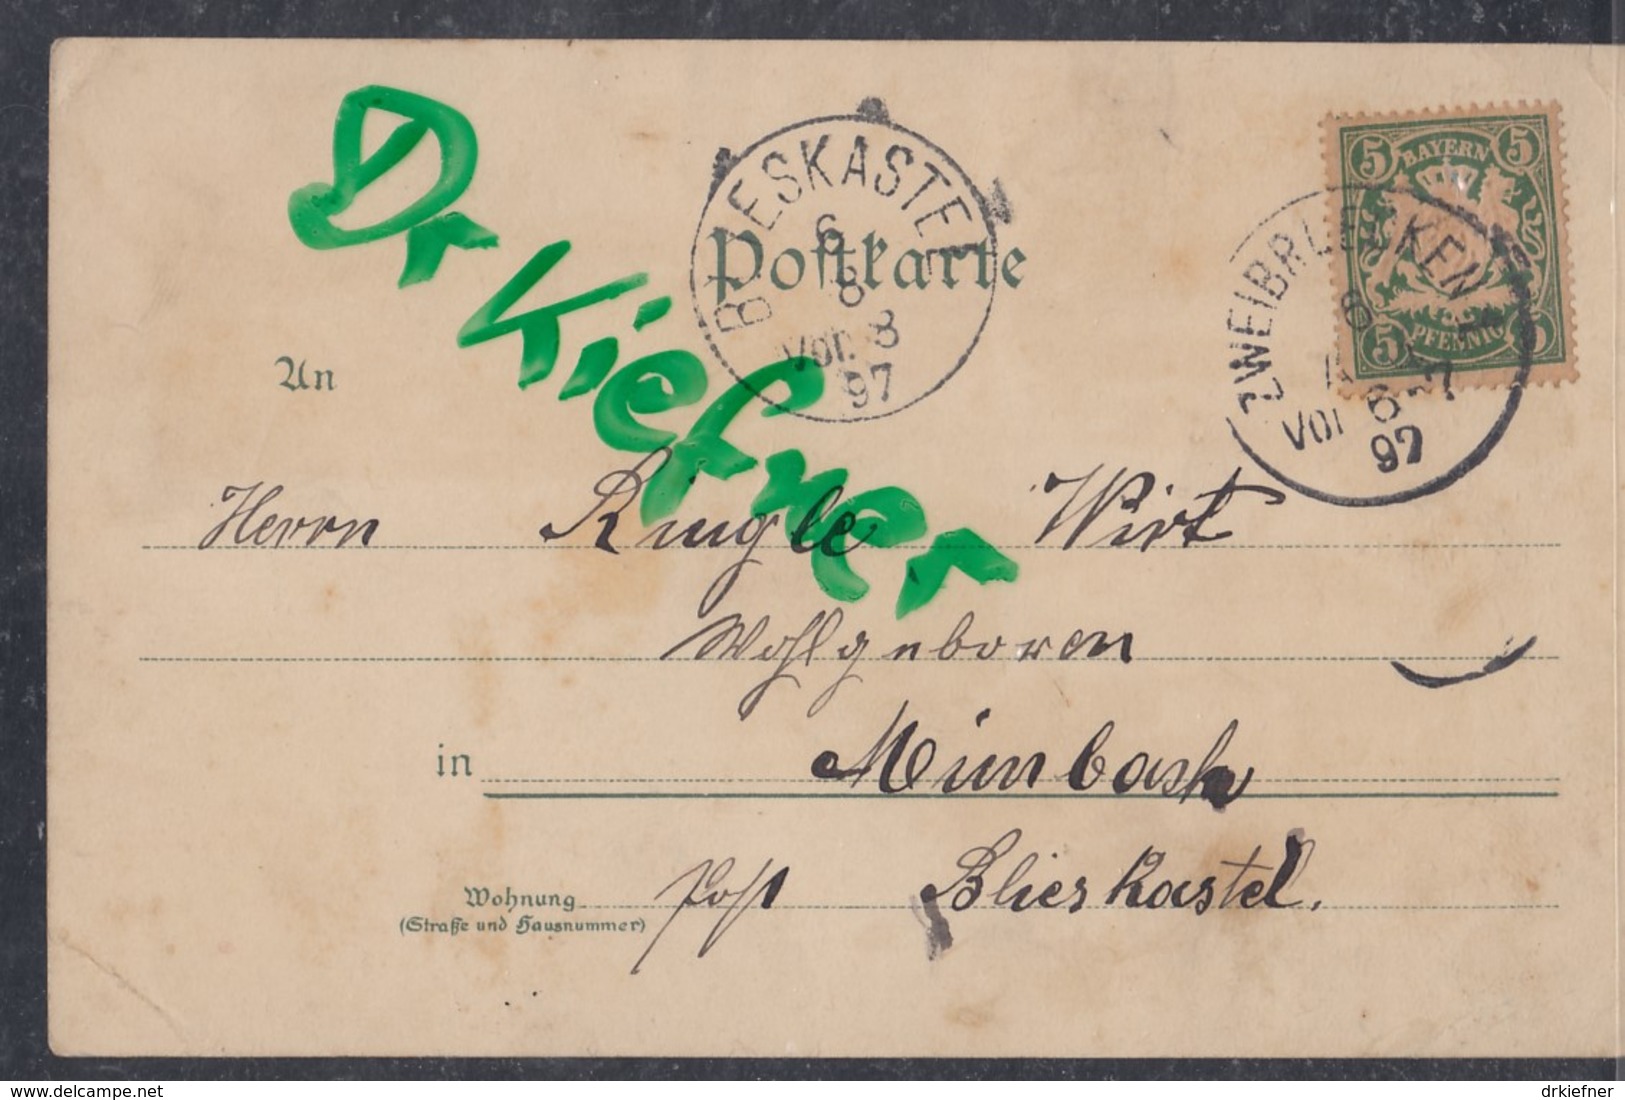 Dr Kiefner
BLIESKASTEL
6
8
Vor. 8
97
Postkarte
5 5
BAYERN
PFENNIG
5 5
ZWEIBRUECKEN
Vor 6
97
An
Herrn Ringle Wirt
Wohlgeboren
in Mimbach
Wohnung
(Straße und Hausnummer)
Post Blieskastel.
www.delcampe.net
drkiefner